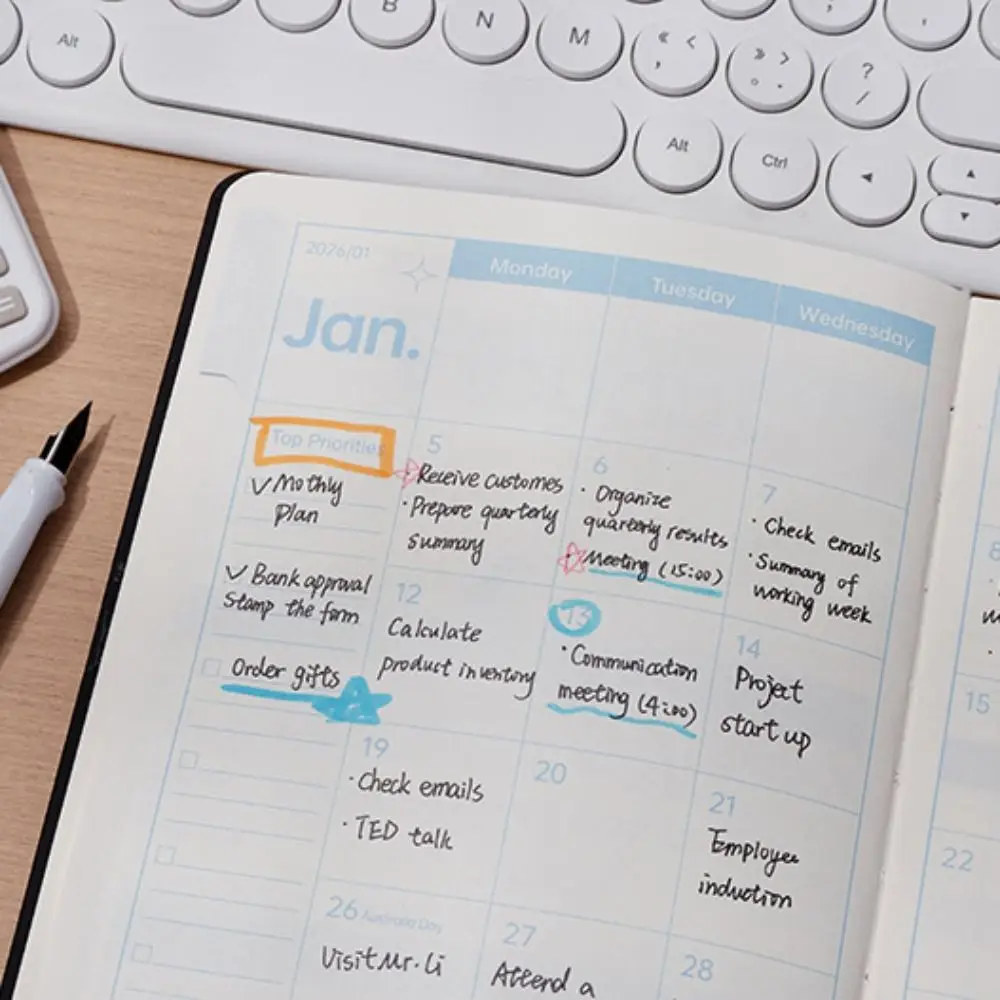 B
N
M
Alt
« <
,
» >
? 
/
;
,
Alt
Ctrl
2026/01
Jan.
Monday
Tuesday
Wednesday
Top Priorities
✓ Mothly
plan
✓ Bank approval
Stamp the form
Order gifts
5
· Receive customes
· Prepare quarterly
summary
6
· Organize
quarterly results
Meeting (15:00)
7
· Check emails
· Summary of
working week
8
12
Calculate
product inventory
13
· Communication
meeting (4:00)
14
Project
start up
15
19
· Check emails
· TED talk
20
21
Employee
induction
22
26 Australia Day
Visit Mr. Li
27
Attend a
28